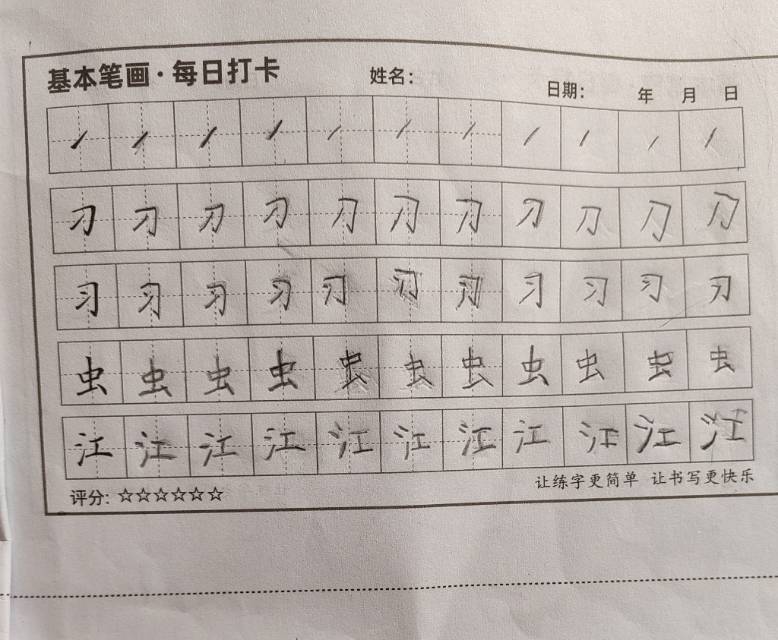 基本笔画·每日打卡 姓名： 日期： 年 月 日
刁 刁 刁 刁 刁 刁 刁 刁 刁 刁 刁
习 习 习 习 习 习 习 习 习 习 习
虫 虫 虫 虫 虫 虫 虫 虫 虫 虫 虫
江 江 江 江 江 江 江 江 江 江 江
评分: ☆☆☆☆☆☆ 让练字更简单 让书写更快乐